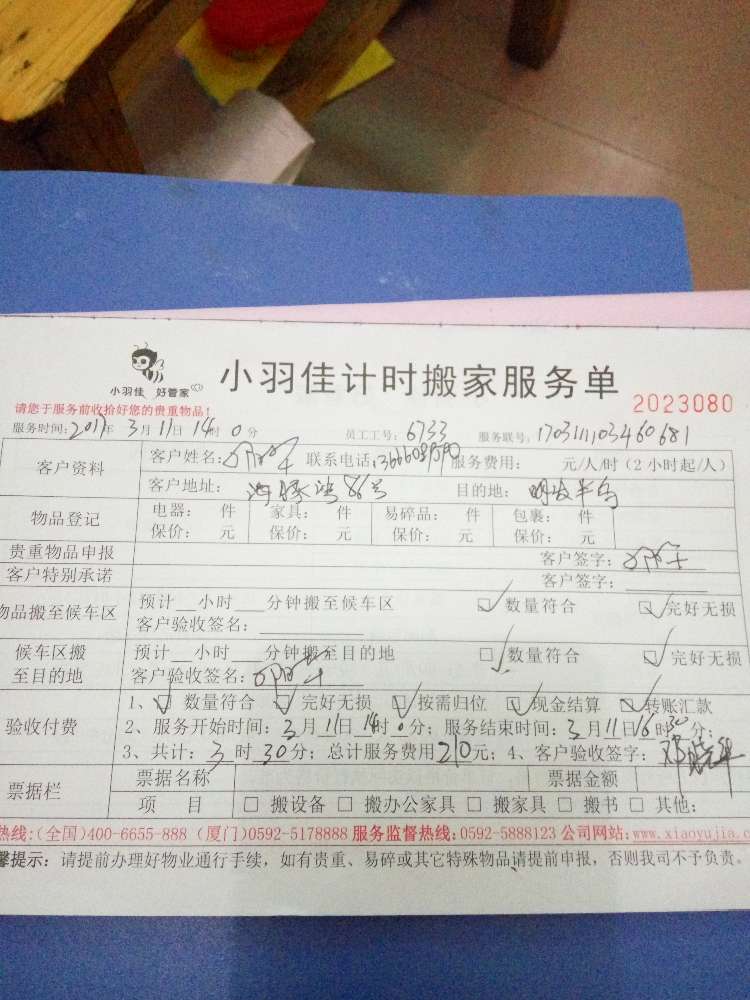 小羽佳 好管家
小羽佳计时搬家服务单
2023080
请您于服务前收拾好您的贵重物品!
服务时间:2017年3月11日14时0分 员工工号:6733 服务联号:170311103460681
客户资料 客户姓名: 联系电话: 服务费用: 元/人/时(2小时起/人)
客户地址: 86号 目的地:明发半岛
物品登记 电器: 件 家具: 件 易碎品: 件 包裹: 件
保价: 元 保价: 元 保价: 元 保价: 元
贵重物品申报 客户签字:
客户特别承诺 客户签字:
物品搬至候车区 预计__小时___分钟搬至候车区 ☑数量符合 ☑完好无损
客户验收签名:
候车区搬至目的地 预计__小时___分钟搬至目的地 ☑数量符合 ☑完好无损
客户验收签名:
验收付费 1、☑数量符合 ☑完好无损 ☑按需归位 ☑现金结算 ☑转账汇款
2、服务开始时间:3月11日14时0分;服务结束时间:3月11日16时30分;
3、共计:3时30分;总计服务费用210元;4、客户验收签字:邓晓华
票据栏 票据名称 票据金额
项 目 □搬设备 □搬办公家具 □搬家具 □搬书 □其他:
热线:(全国)400-6655-888 (厦门)0592-5178888 服务监督热线:0592-5888123 公司网站:www.xiaoyujia.com
馨提示:请提前办理好物业通行手续,如有贵重、易碎或其它特殊物品请提前申报,否则我司不予负责。